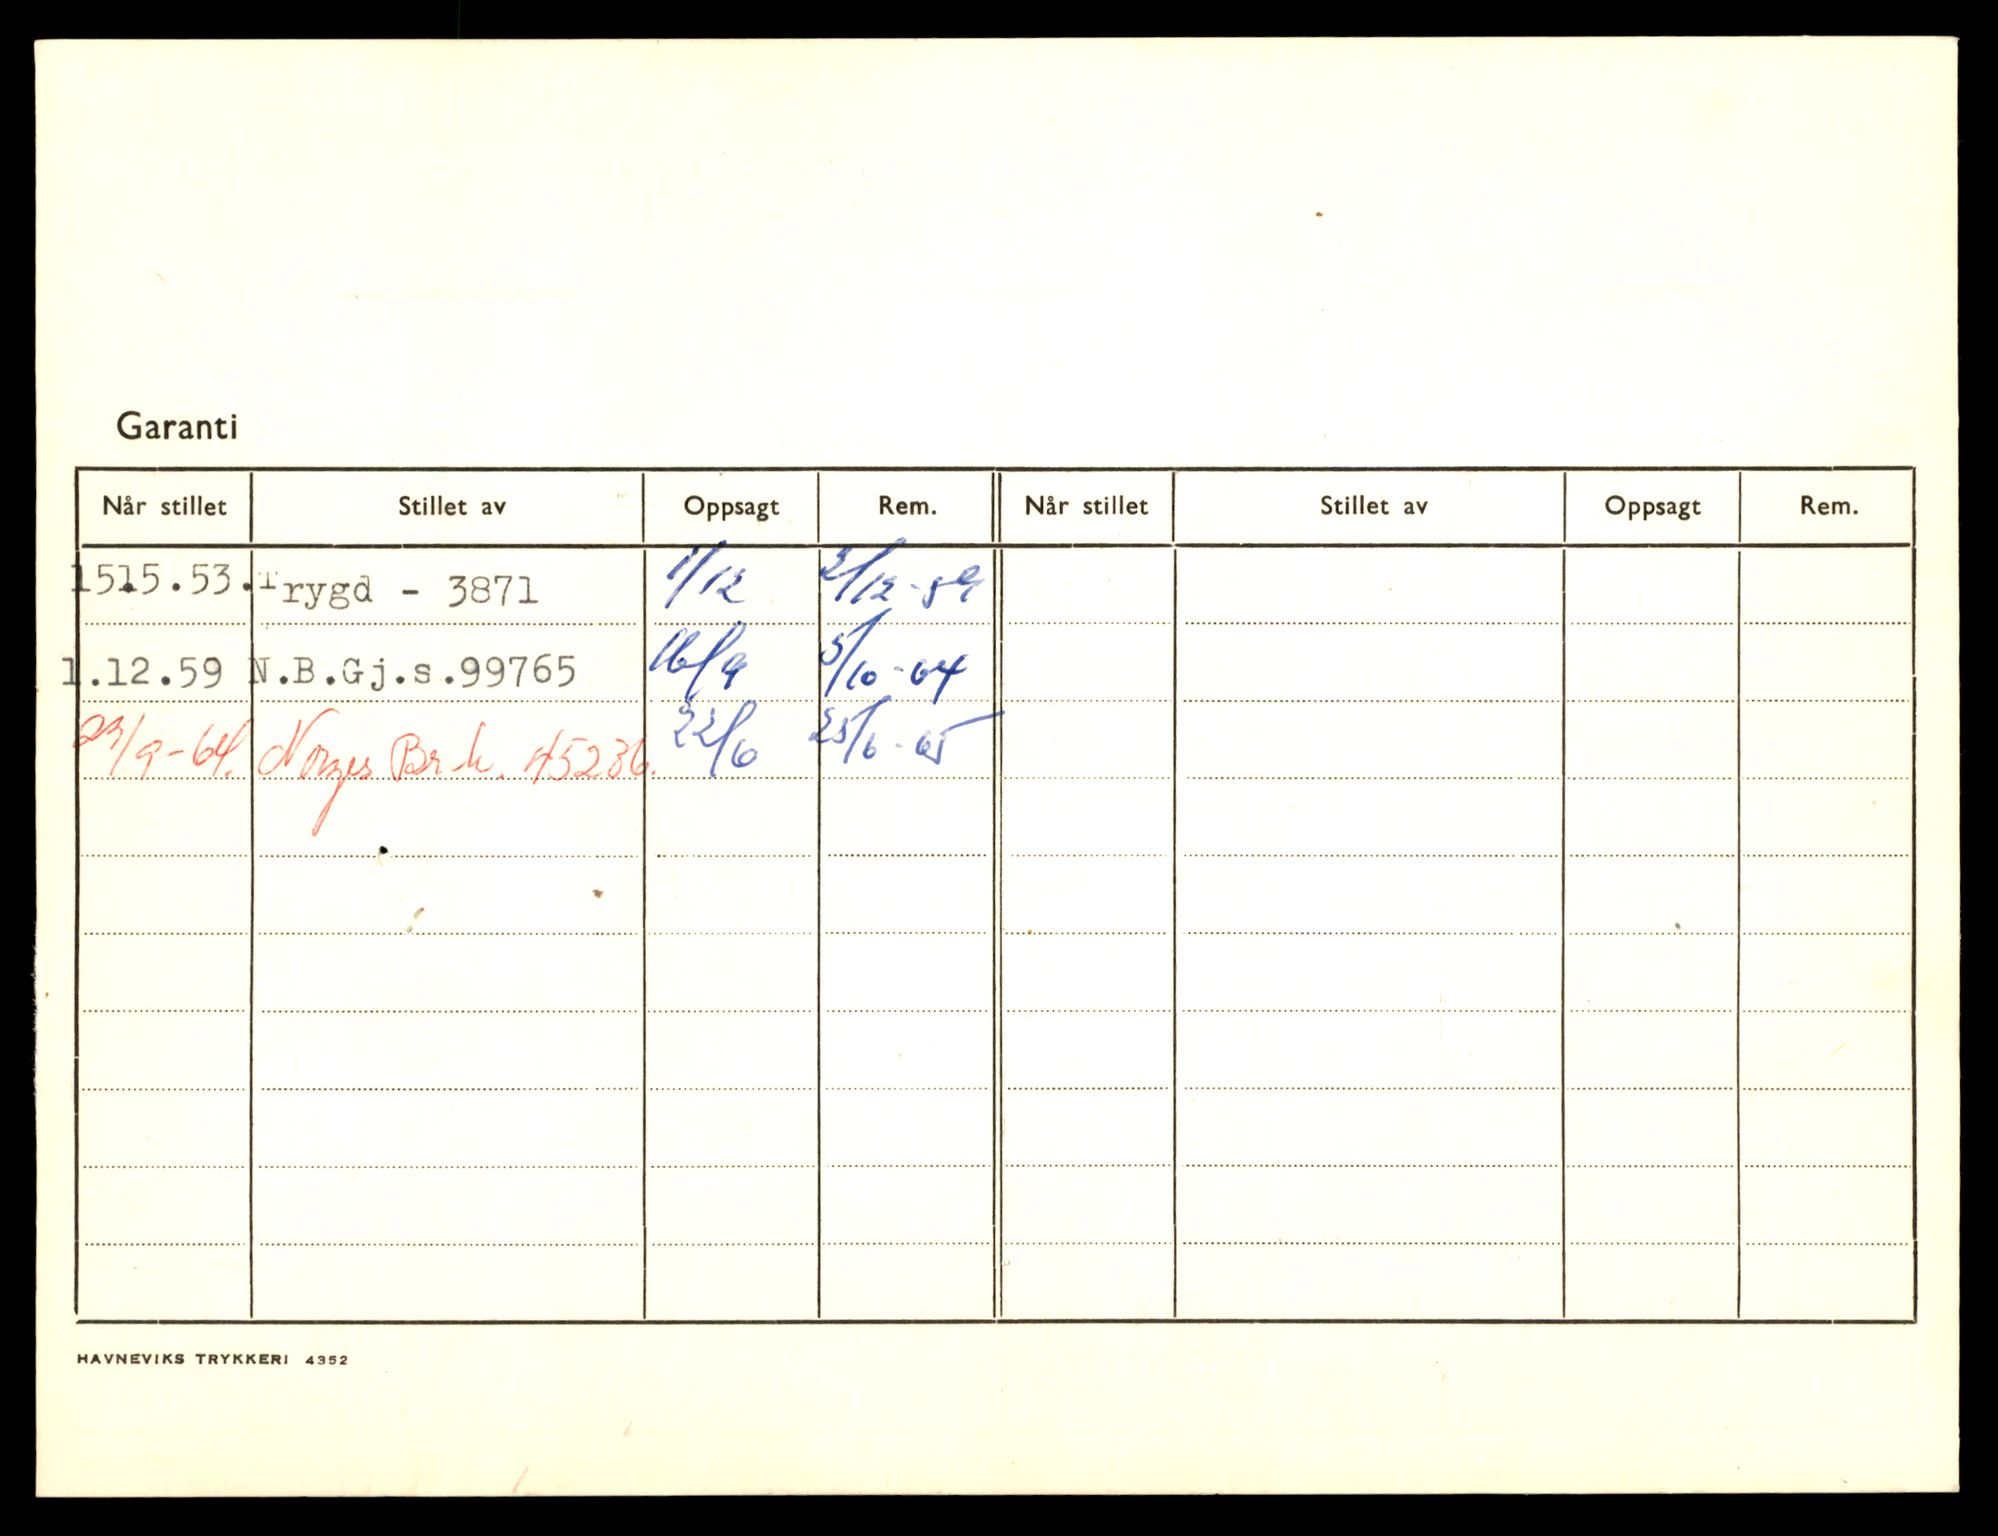 Garanti
Når stillet Stillet av Oppsagt Rem. Når stillet Stillet av Oppsagt Rem.
1515.53. Trygd - 3871 1/12 2/12-59
1.12.59 N.B.Gj.s.99765 16/9 5/10-64
23/9-64. Norges Br.k. 45236. 22/6 25/6-65
HAVNEVIKS TRYKKERI 4352